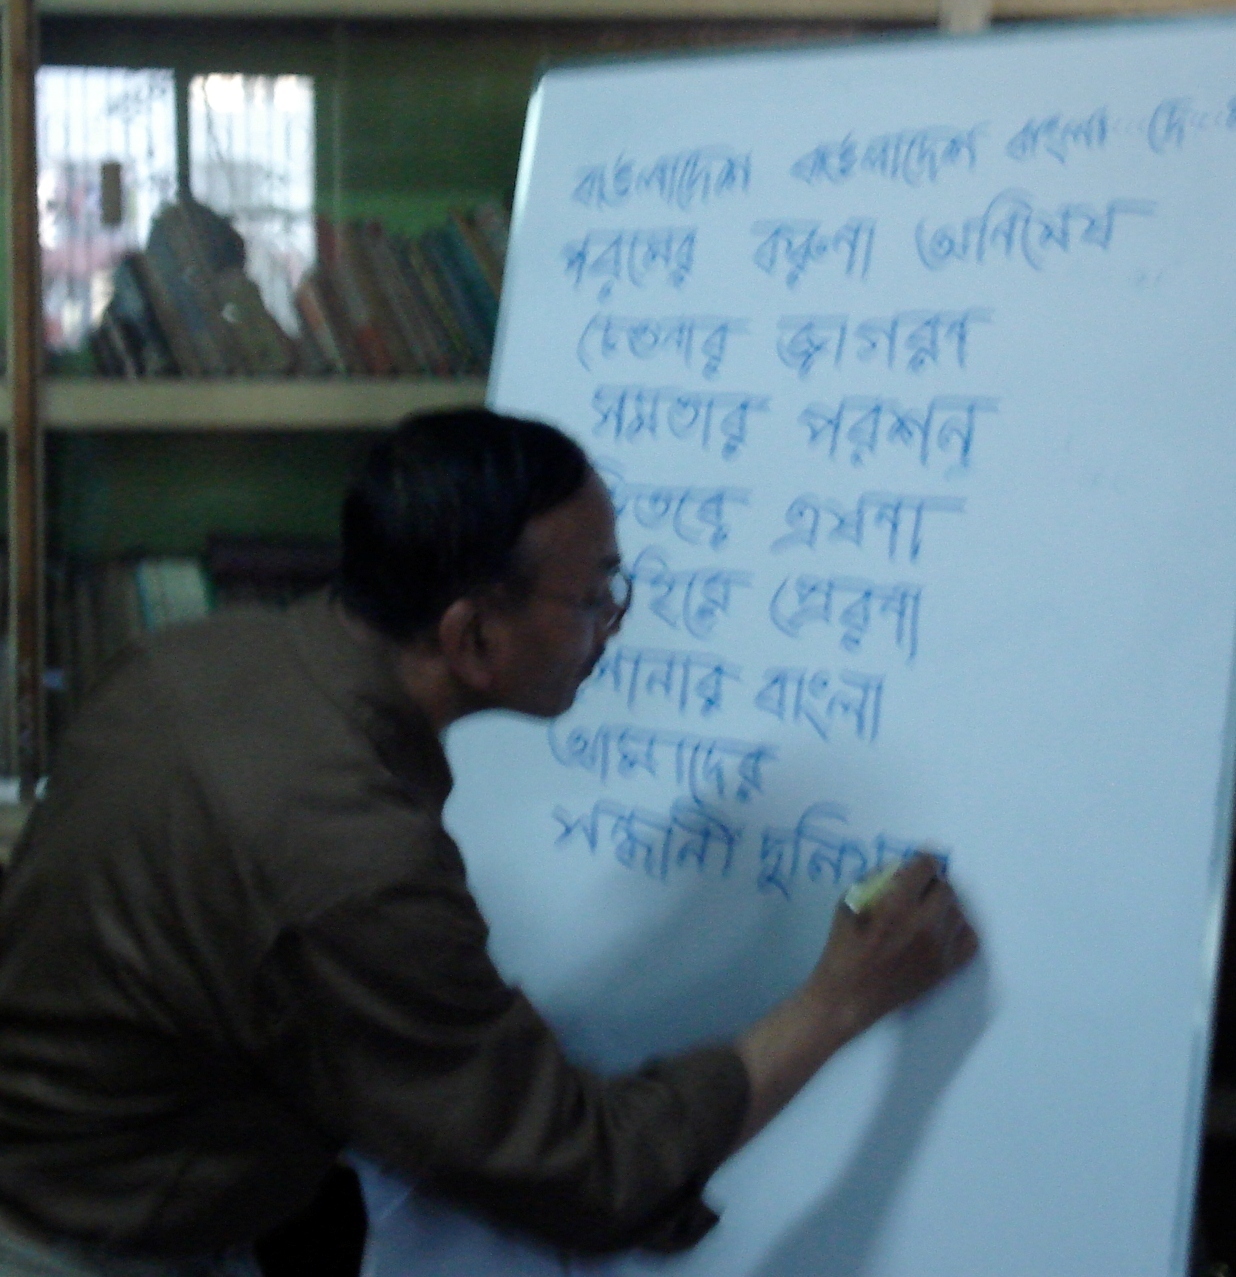 বাঙলাদেশ বাঙলাদেশ বাংলা দে
পরমের করুণা অনিমেষ
চেতনার জাগরণ
সমতার পরশন
এষণা
প্রেরণা
সোনার বাংলা
আমাদের
সন্ধানী